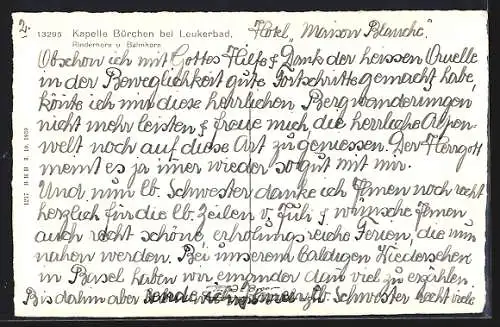 2.
13295 Kapelle Bürchen bei Leukerbad, Hotel „Maison Blanche“.
Rinderhorn u. Balmhorn
Obschon ich mit Gottes Hilfe & Dank der heissen Quelle
in der Beweglichkeit gute Fortschritte gemacht habe,
könnte ich mir diese herrlichen Bergwanderungen
nicht mehr leisten & freue mich, die herrliche Alpen-
welt noch auf diese Art zu geniessen. Der Herrgott
meint es ja imer wieder so gut mit mir.
Und nun lb. Schwester danke ich Ihnen noch recht
herzlich für die lb. Zeilen v. Juli & wünsche Ihnen
auch recht schöne erholungsreiche Ferien, die nun
nahen werden. Bei unserem baldigen Wiedersehen
in Basel haben wir einander dann viel zu erzählen.
Bis dahin aber sende ich Ihnen, lb. Schwester recht viele